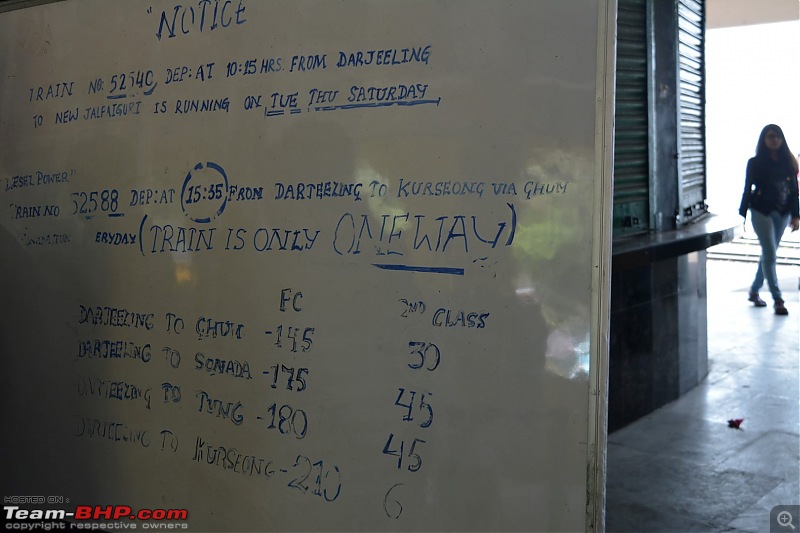 "NOTICE
TRAIN NO: 52540, DEP: AT 10:15 HRS. FROM DARJEELING
TO NEW JALPAIGURI IS RUNNING ON TUE THU SATURDAY
DIESEL POWER"
TRAIN NO 52588 DEP: AT 15:35 FROM DARJEELING TO KURSEONG VIA GHUM
ERYDAY (TRAIN IS ONLY ONEWAY)
FC 2ND CLASS
DARJEELING TO GHUM -145 30
DARJEELING TO SONADA -175 45
DARJEELING TO TUNG -180 45
DARJEELING TO KURSEONG -210 6
HOSTED ON:
Team-BHP.com
copyright respective owners